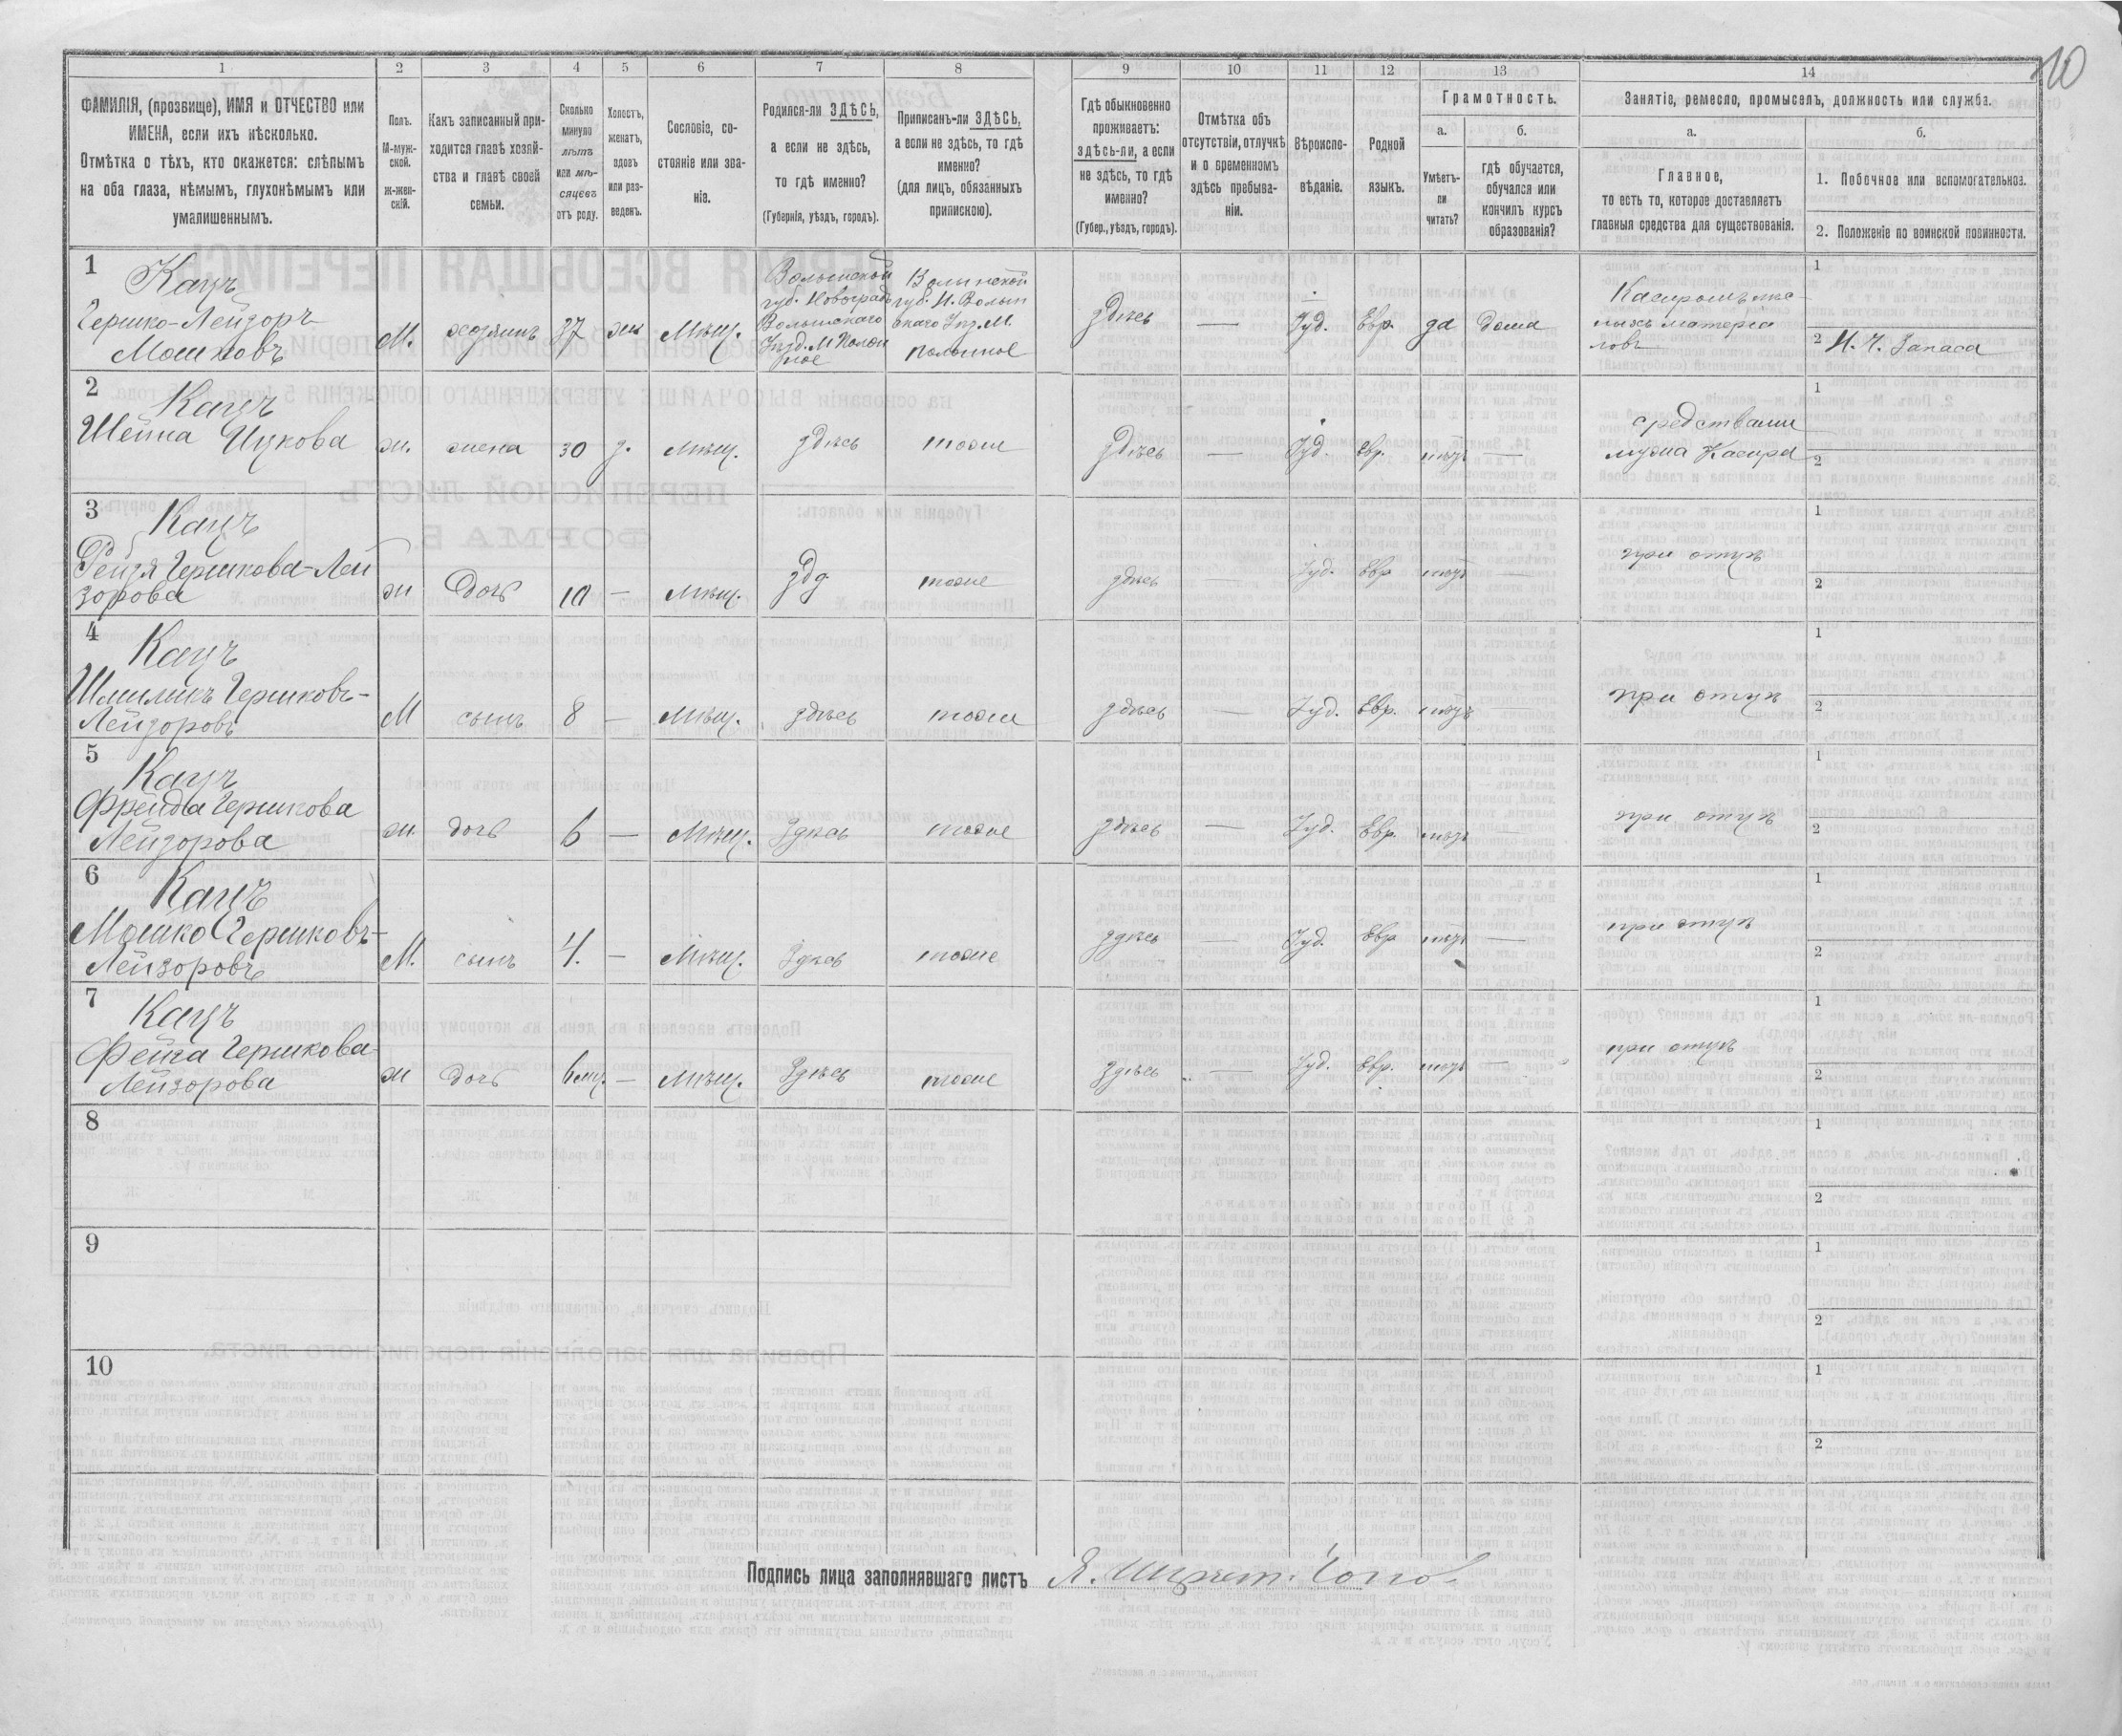 10
1 2 3 4 5 6 7 8 9 10 11 12 13 14
ФАМИЛІЯ, (прозвище), ИМЯ и ОТЧЕСТВО или
ИМЕНА, если ихъ нѣсколько.
Отмѣтка о тѣхъ, кто окажется: слѣпымъ
на оба глаза, нѣмымъ, глухонѣмымъ или
умалишеннымъ.
Полъ.
М-муж-
ской.
ж-жен-
скій.
Какъ записанный при-
ходится главѣ хозяй-
ства и главѣ своей
семьи.
Сколько
минуло
лѣтъ
или мѣ-
сяцевъ
отъ роду.
Холостъ,
женатъ,
вдовъ
или раз-
веденъ.
Сословіе, со-
стояніе или зва-
ніе.
Родился-ли ЗДѢСЬ,
а если не здѣсь,
то гдѣ именно?
(Губернія, уѣздъ, городъ).
Приписанъ-ли ЗДѢСЬ,
а если не здѣсь, то гдѣ
именно?
(для лицъ, обязанныхъ
припискою).
Гдѣ обыкновенно
проживаетъ:
здѣсь-ли, а если
не здѣсь, то гдѣ
именно?
(Губер., уѣздъ, городъ).
Отмѣтка объ
отсутствіи, отлучкѣ
и о временномъ
здѣсь пребыва-
ніи.
Вѣроиспо-
вѣданіе.
Родной
языкъ.
Грамотность.
а. б.
Умѣетъ-
ли
читать?
гдѣ обучается,
обучался или
кончилъ курсъ
образованія?
Занятіе, ремесло, промыселъ, должность или служба.
а. б.
Главное,
то есть то, которое доставляетъ
главныя средства для существованія.
1. Побочное или вспомогательное.
2. Положеніе по воинской повинности.
1
Кацъ
Гершко-Лейзоръ
Мошковъ
М. хозяинъ 37 жен Мѣщ.
Волынской
губ. Новоградъ
Волынскаго
Уѣзд. М Полон
ное
Волынской
губ. Н. Волын
скаго Уѣз. М.
Полонное
здѣсь — Іуд. Евр. да дома
матеріа
ловъ
1
2 Н. Ч. Запаса
2
Кацъ
Шейна Ицкова
ж. жена 30 з. мѣщ. здѣсь тоже здѣсь — Іуд. Евр. нѣтъ —
средствами
мужа Касира
1
2
3
Кацъ
Рейзя Гершкова-Лей
зорова
ж дочь 10 — мѣщ. здѣ тоже здѣсь — Іуд. Евр нѣтъ —
при отцѣ
1
2
4
Кацъ
Шмиликъ Гершковъ-
Лейзоровъ
М сынъ 8 — мѣщ. здѣсь тоже здѣсь — Іуд. Евр. нѣтъ —
при отцѣ
1
2
5
Кацъ
Фрейда Гершкова
Лейзорова
ж. дочь 6 — Мѣщ. Здѣсь тоже здѣсь — Іуд. Евр. нѣтъ —
при отцѣ
1
2
6
Кацъ
Мошко Гершковъ-
Лейзоровъ
М. сынъ 4. — Мѣщ. Здѣсь тоже здѣсь — Іуд. Евр нѣтъ —
при отцѣ
1
2
7
Кацъ
Фейга Гершкова-
Лейзорова
ж дочь 6 мц. — Мѣщ. Здѣсь тоже Здѣсь — Іуд. Евр. нѣтъ —
при отцѣ
1
2
8
1
2
9
1
2
10
1
2
Подпись лица заполнявшаго листъ